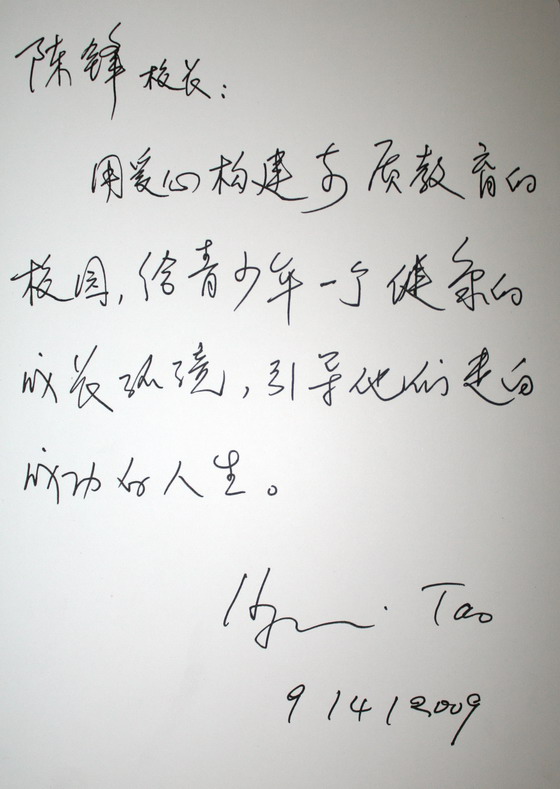 陈锋校长：
用爱心构建素质教育的
校园，给青少年一个健康的
成长环境，引导他们走向
成功的人生。
Tao
9/4/2009